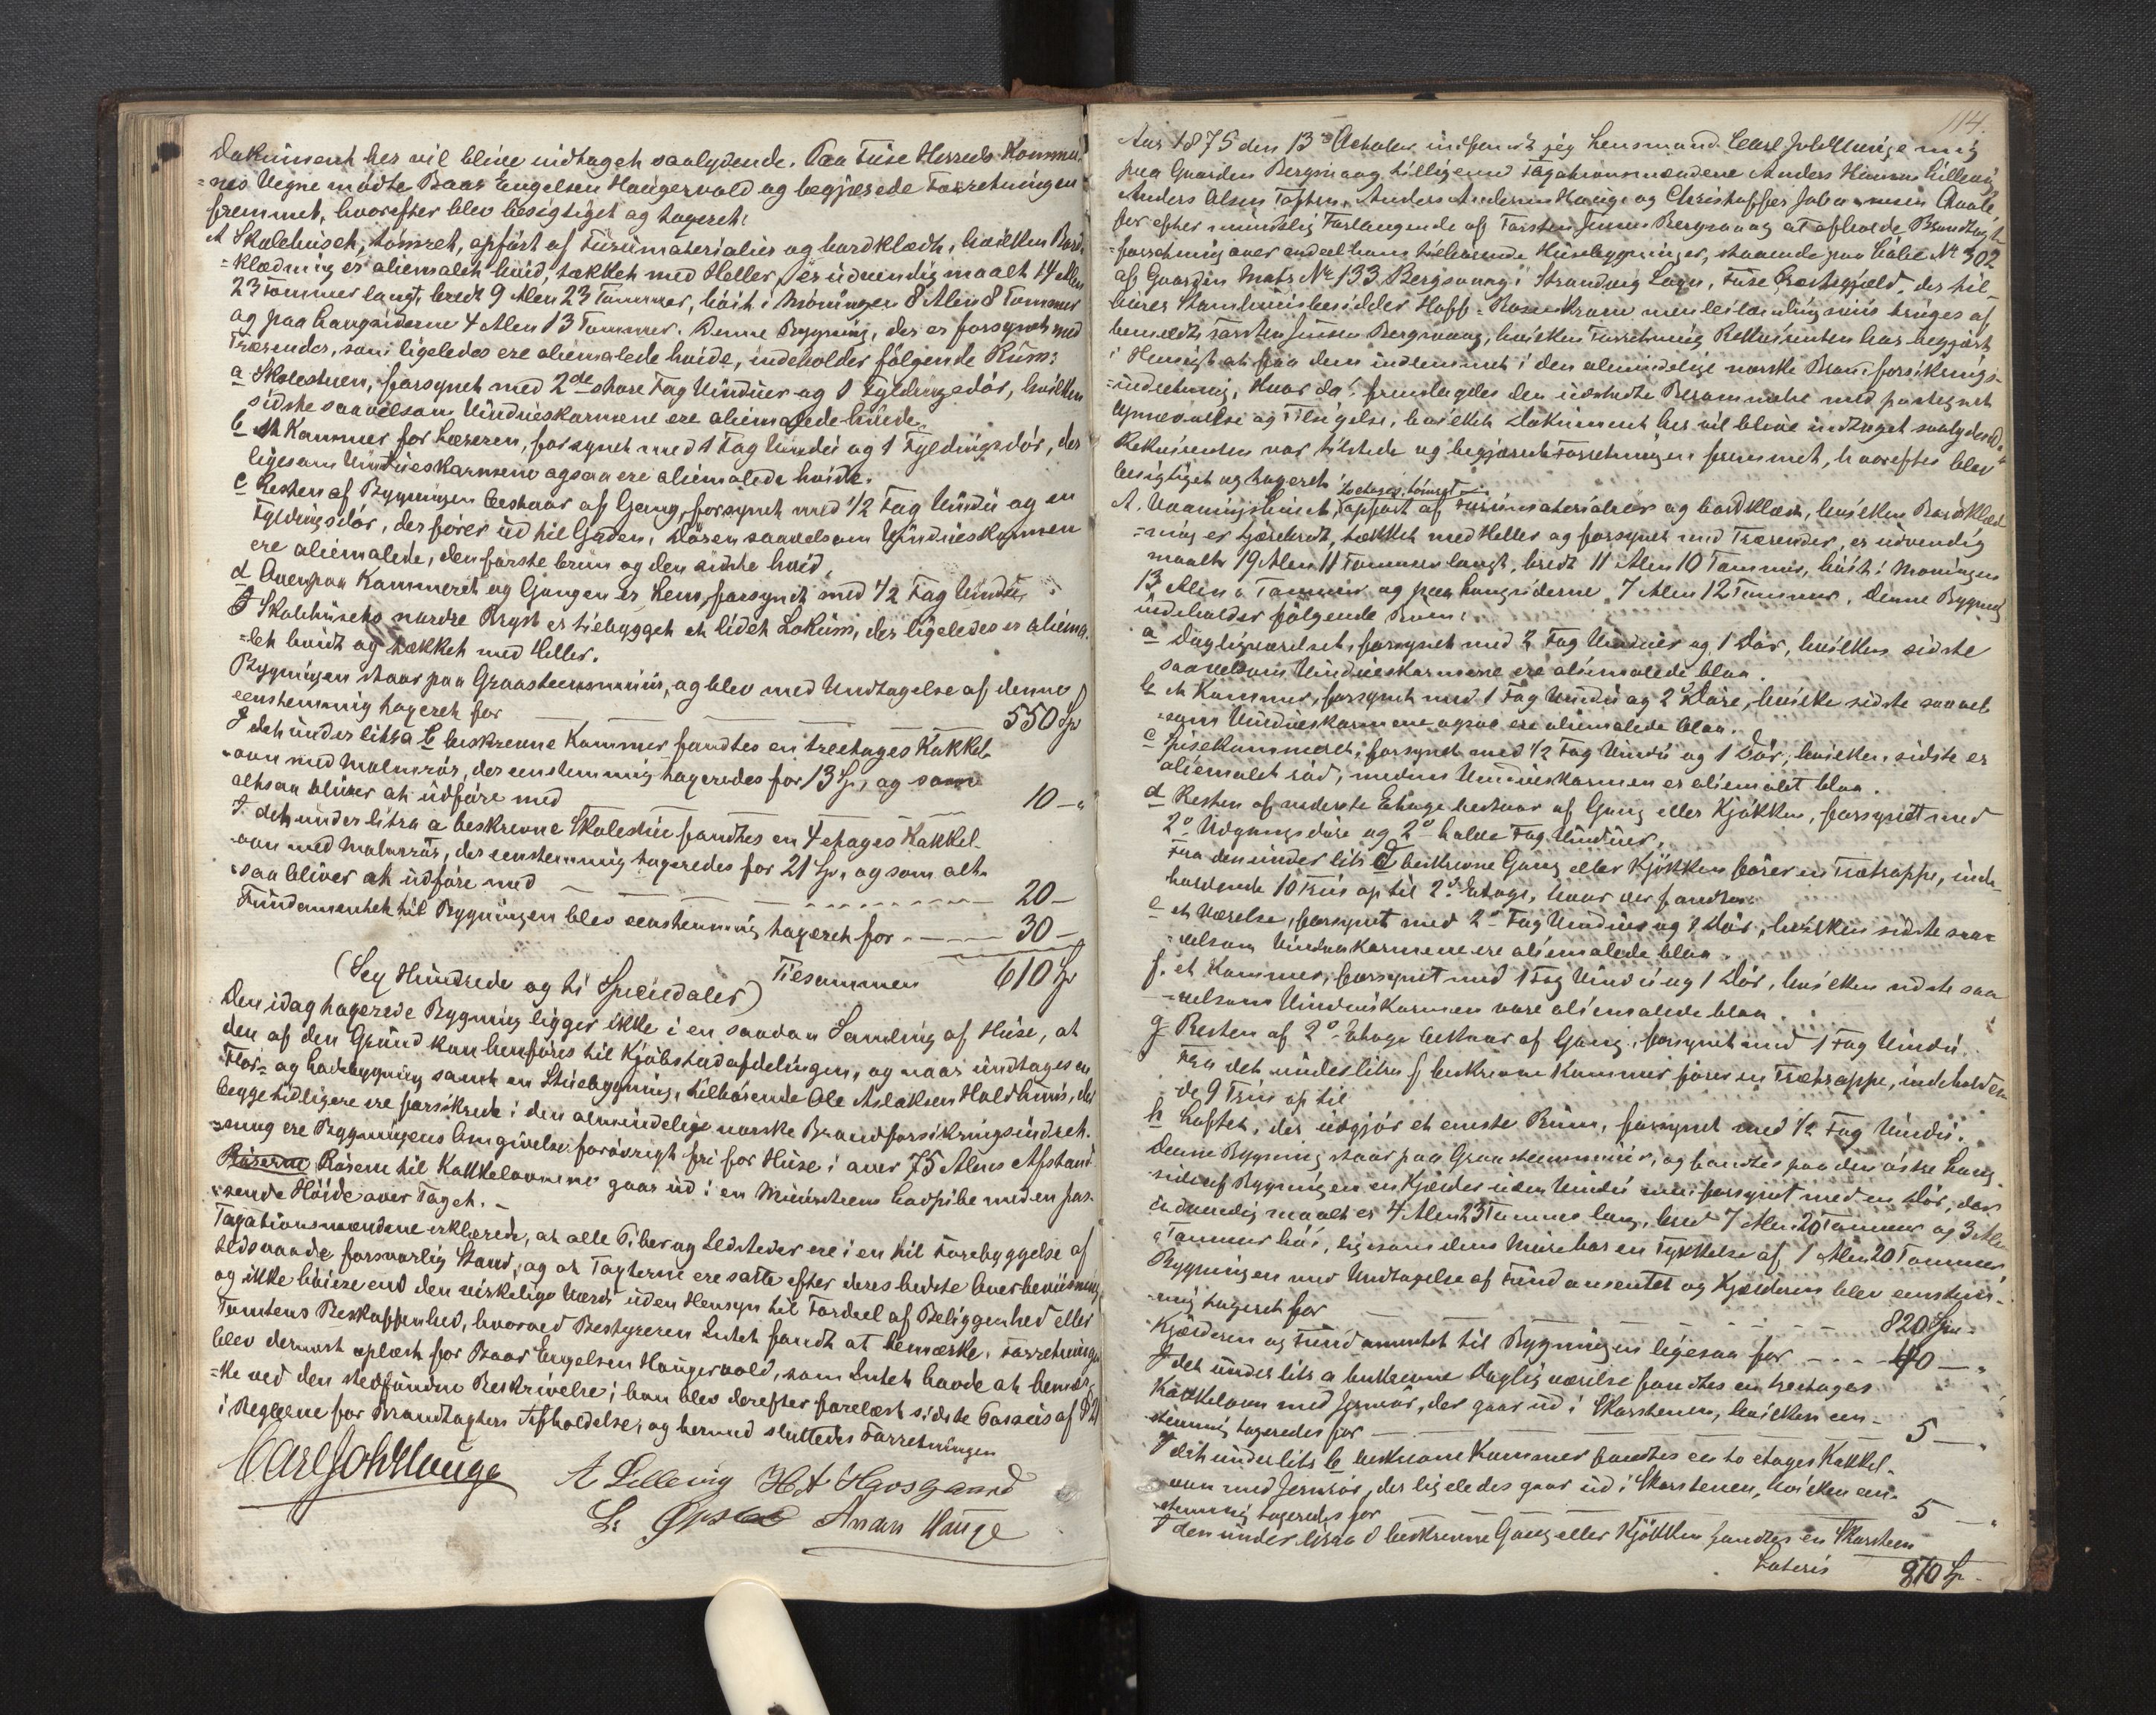 Dokument her vil blive indtaget saalydende. Paa Fuse Herreds Kommu-
=nes Vegne mødte Baar Engelsen Haugervold og begjærede Forretningen
fremmet, hvorefter blev besigtiget og taxeret:
A Skolehuset, tømret, opført af Furumaterialier og bordklædt, hvilken Bord-
=klædning er oliemalet hvid, tækket med Heller, er udvendig maalt 14 Alen
23 Tommer langt, bredt 9 Alen 23 Tommer, høit i Møningen 8 Alen 8 Tommer
og paa Langsiderne 4 Alen 13 Tommer. Denne Bygning, der er forsynet med
Trærender, som ligeledes ere oliemalede hvide, indeholder følgende Rum:
a Skolestuen, forsynet med 2de store Fag Vinduer og 1 Fyldingsdør, hvilken
sidste saavelsom Vindueskarmene ere oliemalede hvide.
b et Kammer for Læreren, forsynet med 1 Fag Vindu og 1 Fyldingsdør, der
ligesom Vindueskarmene ogsaa ere oliemalede hvide.
c Resten af Bygningen bestaar af Gang, forsynet med 1/2 Fag Vindu og en
Fyldingsdør, der fører ud til Gaden, Døren saavelsom Vindueskarmen
ere oliemalede, den første brun og den sidste hvid.
d Ovenpaa Kammeret og Gangen er Lem, forsynet med 1/2 Fag Vindu.
Skolehusets nordre Bryst er tilbygget et lidet Lokum, der ligeledes er oliema-
=let hvidt og tækket med Heller.
Bygningen staar paa Graasteensmuur, og blev med Undtagelse af denne
eenstemmig taxeret for — — — — 550 Sp
I det under litra b beskrevne Kammer fandtes en treetages Kakkel-
=ovn med Malmrør, der eenstemmig taxeredes for 13 Sp, og som
altsaa bliver at udføre med — — — 10 — "
I det under litra a beskrevne Skolestue fandtes en 4 etages Kakkel-
=ovn med Malmrør, der eenstemmig taxeredes for 21 Sp, og som alt-
=saa bliver at udføre med — — — 20 —
Fundamentet til Bygningen blev eenstemmig taxeret for — — 30 —
Tilsammen 610 Sp
(Sex Hundrede og ti Speciedaler)
Den idag taxerede Bygning ligger ikke i en saadan Samling af Huse, at
den af den Grund kan henføres til Kjøbstadafdelingen, og naar undtages en
Flor= og Ladebygning samt en Stuebygning, tilhørende Ole Aslaksen Holdhuus, der
begge tidligere ere forsikrede i den almindelige norske Brandforsikringsindret-
=ning ere Bygningens Omgivelse forøvrigt fri for Huse i over 75 Alens Afstand.
Rørerne Rørene til Kakkelovnene gaar ud i en Muursteens Ladpibe med en pas-
=sende Høide over Taget. —
Taxationsmændene erklærede, at alle Piber og Ildsteder ere i en til Forebyggelse af
Ildsvaade forsvarlig Stand, og at Taxterne ere satte efter deres bedste Overbeviisning
og ikke høiere end den virkelige Værdi uden Hensyn til Fordeel af Beliggenhed eller
Tomtens Beskaffenhed, hvorved Bestyreren Intet fandt at bemærke. Forretningen
blev dernæst oplæst for Baar Engelsen Haugervold, som Intet havde at bemær-
=ke ved den stedfundne Beskrivelse; han blev derefter forelæst sidste Passus af § 21
i Reglerne for Brandtaxters Afholdelse, og hermed sluttedes Forretningen
Carl Joh Hauge
A Lillevig H A Havsgaard
L. Anders Hauge
114.
Aar 1875 den 13de October indfandt jeg Lensmand Carl Joh Hauge mig
paa Gaarden Bergsvaag tilligemed Taxationsmændene Anders Hansen Lillevig,
Anders Olsen Toften, Anders Andersen Hauge og Christoffer Johannesen
for efter mundtlig Forlangende af Torsten Jensen Bergsvaag at afholde Brandtaxt-
=forretning over endeel ham tilhørende Huusbygninger, staaende paa Løbe No 302
af Gaarden Matr No 133 Bergsvaag i Strandvig Sogn, Fuse Præstegjeld, der til-
hører Stamhuusbesidder Hoff=Rosenkrone men leilændingsviis bruges af
bemeldte Torsten Jensen Bergsvaag, hvilken Forretning Rekvirenten har begjært
i Hensigt at faa dem indlemmet i den almindelige norske Brandforsikrings-
=indretning, Hvor da: fremlagdes den udstedte Berammelse med paategnet
Opnævnelse og Tilsigelse, hvilket Dokument her vil blive indtaget saalydende.
Rekvirenten var tilstede og begjærede Forretningen fremmet, hvorefter blev
besigtiget og taxeret:
toetages, tømret
A. Vaaningshuset, opført af Furumaterialier og bordklædt, hvilken Bordklæd-
=ning er tjærebredt, tækket med Heller og forsynet med Trærender, er udvendig
maalt 19 Alen 11 Tommer langt, bredt 11 Alen 10 Tommer, høit i Møningen
13 Alen " Tommer og paa Langsiderne 7 Alen 12 Tommer. Denne Bygning
indeholder følgende Rum:
a Dagligværelset, forsynet med 3 Fag Vinduer og 1 Dør, hvilken sidste
saavelsom Vindueskarmene ere oliemalede blaa.
b et Kammer, forsynet med 1 Fag Vindu og 2de Døre, hvilke sidste saavel-
=som Vindueskarmene ogsaa ere oliemalede blaa.
c Spisekammeret, forsynet med 1/2 Fag Vindu og 1 Dør, hvilken sidste er
oliemalet rød, medens Vindueskarmen er oliemalet blaa.
d Resten af nederste Etage bestaar af Gang eller Kjøkken, forsynet med
2de Udgangsdøre og 2de halve Fag Vinduer.
Fra den under litr d beskrevne Gang eller Kjøkken fører en Trætrappe, inde-
holdende 10 Trin op til 2den Etage, hvor der fandtes:
e et Værelse, forsynet med 2de Fag Vinduer og 1 Dør, hvilken sidste saa-
=velsom Vindueskarmene ere oliemalede blaa.
f. et Kammer, forsynet med 1 Fag Vindu og 1 Dør, hvilken sidste saa-
=velsom Vindueskarmen vare oliemalede blaa.
g Resten af 2den Etage bestaar af Gang, forsynet med 1 Fag Vindu.
Fra det under litra f beskrevne Kammer fører en Trætrappe, indeholden-
de 9 Trin op til
h Loftet, der udgjør et eneste Rum, forsynet med 1/2 Fag Vindu.
Denne Bygning staar paa Graasteensmuur, og fandtes paa den østre Lang-
side af Bygningen en Kjælder uden Vindu men forsynet med en Dør, der
indvendig maalt er 4 Alen 23 Tommer lang, bred 7 Alen 20 Tommer og 3 Alen
" Tommer høi, ligesom dens Mure har en Tykkelse af 1 Alen 20 Tommer.
Bygningen med Undtagelse af Fundamentet og Kjælderen blev eenstem-
mig taxeret for — — — — 820 Spd
Kjælderen og Fundamentet til Bygningen ligesaa for — — 40 — "
I det under litr a beskrevne Dagligværelse fandtes en treetages
Kakkelovn med Jernrør, der gaar ud i Skorstenen, hvilken een-
stemmig taxeredes for — — — 5 — "
I det under litr b beskrevne Kammer fandtes en to etages Kakkel-
ovn med Jernrør, der ligeledes gaar ud i Skorstenen, hvilken een-
stemmig taxeredes for — — — 5 — "
I den under litra d beskrevne Gang eller Kjøkken fandtes en Skorsteen
Lateris 870 Sp